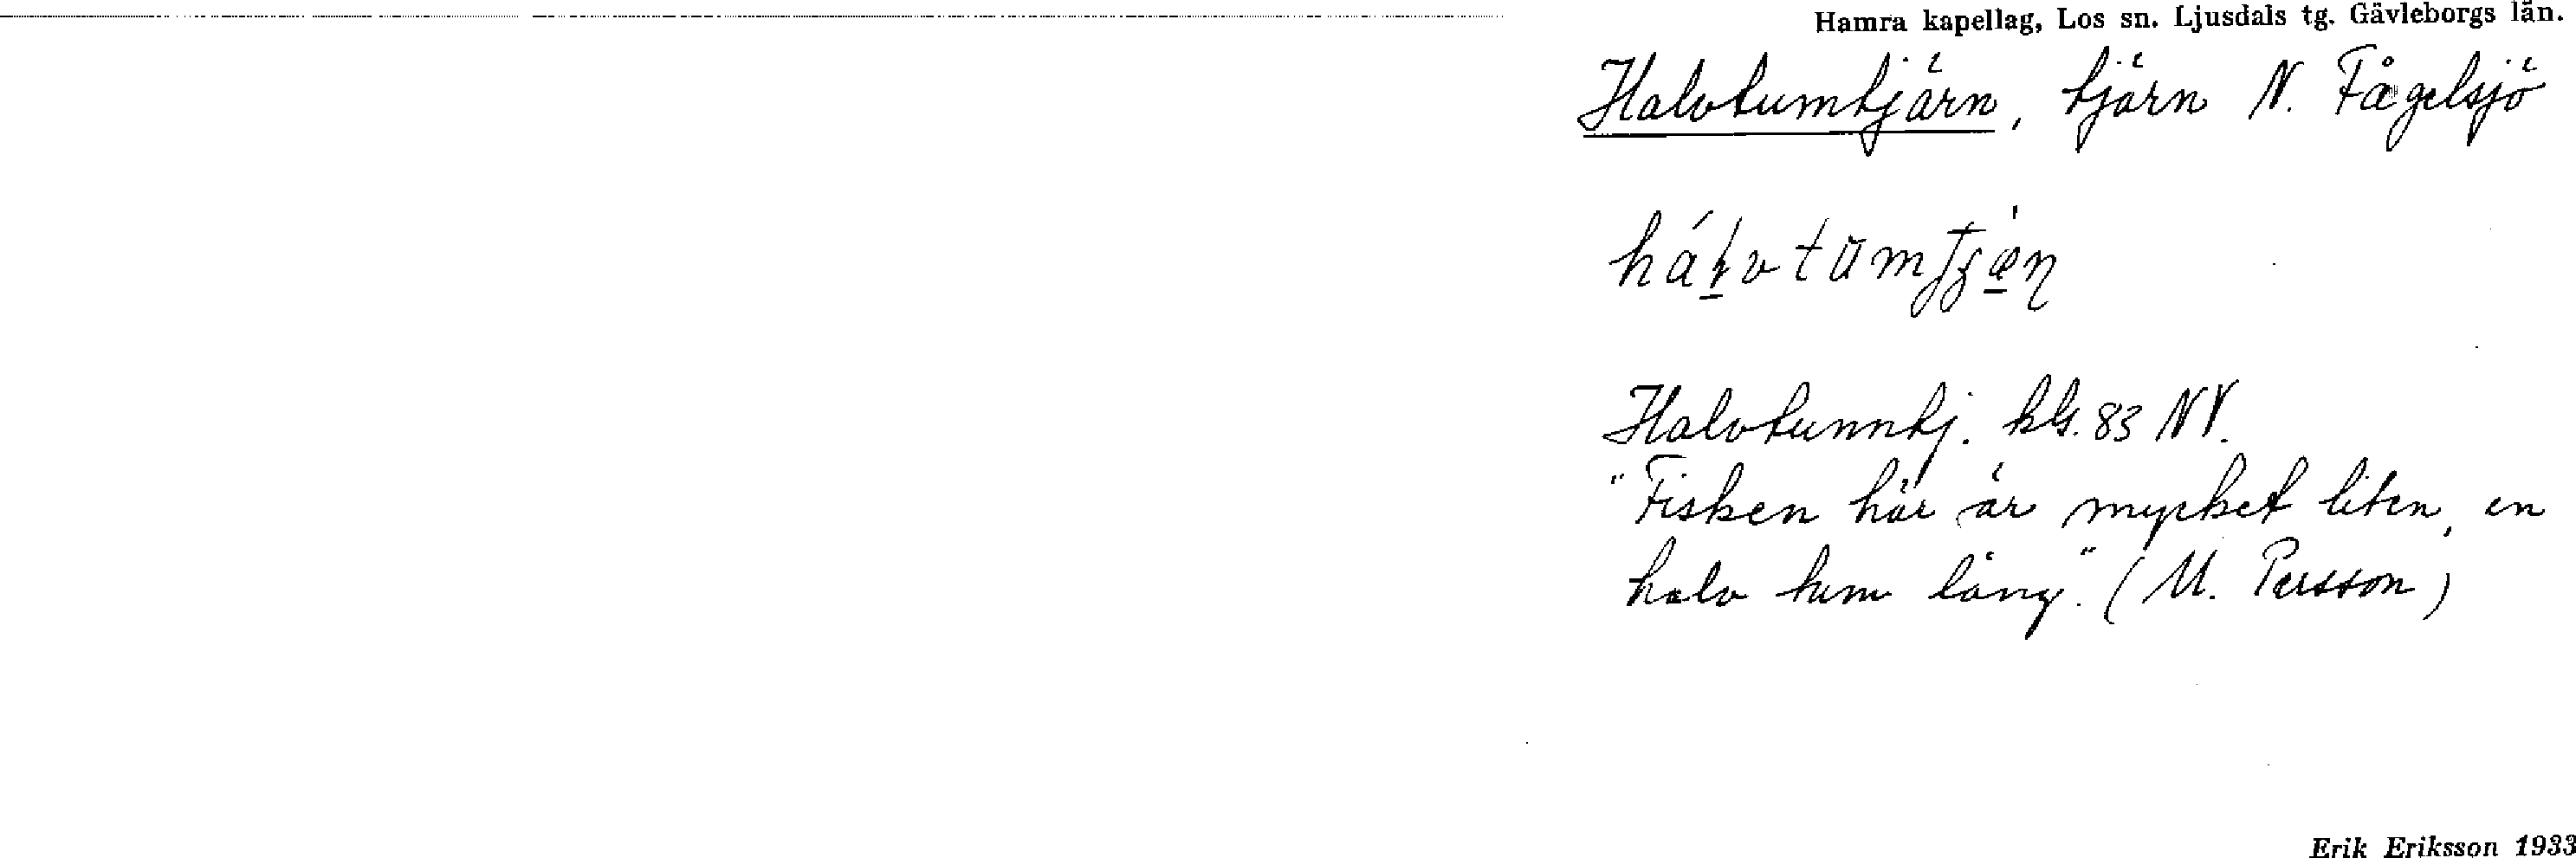 Hamra kapellag, Los sn. Ljusdals tg. Gävleborgs län.
Halvtumtjärn, tjärn N. Fågelsjö
Halvtunntj. kbl. 83 NV.
"Fisken här är mycket liten, en
halv tum lång." (M. Persson)
Erik Eriksson 1933